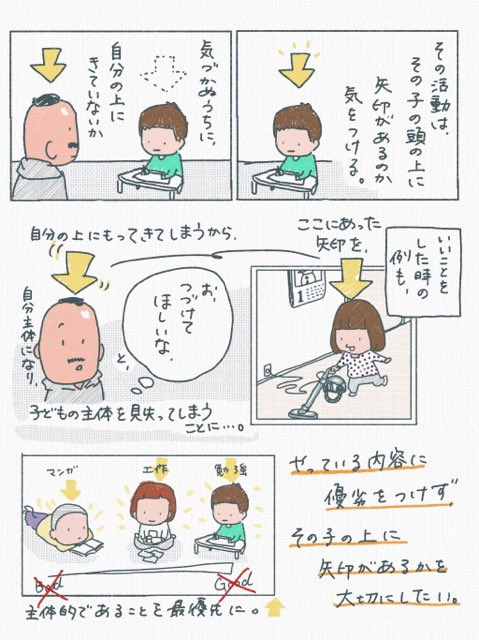 その活動は、
その子の頭の上に
矢印があるのか
気をつける。
気づかぬうちに、
自分の上に
きていないか
いいことを
した時の
例も、
ここにあった
矢印を、
自分の上にもってきてしまうから、
お、
つづけて
ほしいな。
と、
自分主体になり、
子どもの主体を見失ってしまう
ことに…。
1
マンガ
工作
勉強
Bad
Good
主体的であることを最優先に。
やっている内容に
優劣をつけず
その子の上に
矢印があるかを
大切にしたい。